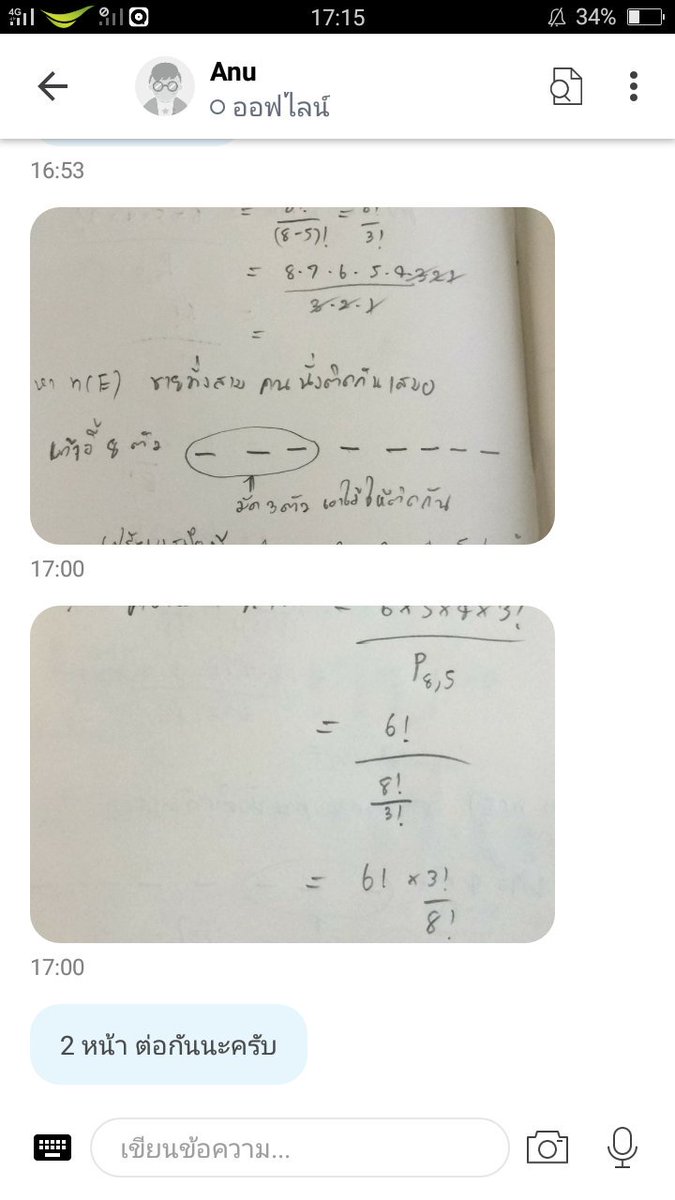 4G 17:15 34%
Anu
ออฟไลน์
16:53
= = 
(8-5)! 3!
= 8·7·6·5·4·3·2·1
3·2·1
=
หา n(E) ชายทั้งสาม คน นั่งติดกันเสมอ
เก้าอี้ 8 ตัว
มัด 3 ตัว เอาไว้ให้ติดกัน
17:00
= 6×5×4×3!
P8,5
= 6!
8!
3!
= 6! × 3!
8!
17:00
2 หน้า ต่อกันนะครับ
เขียนข้อความ...